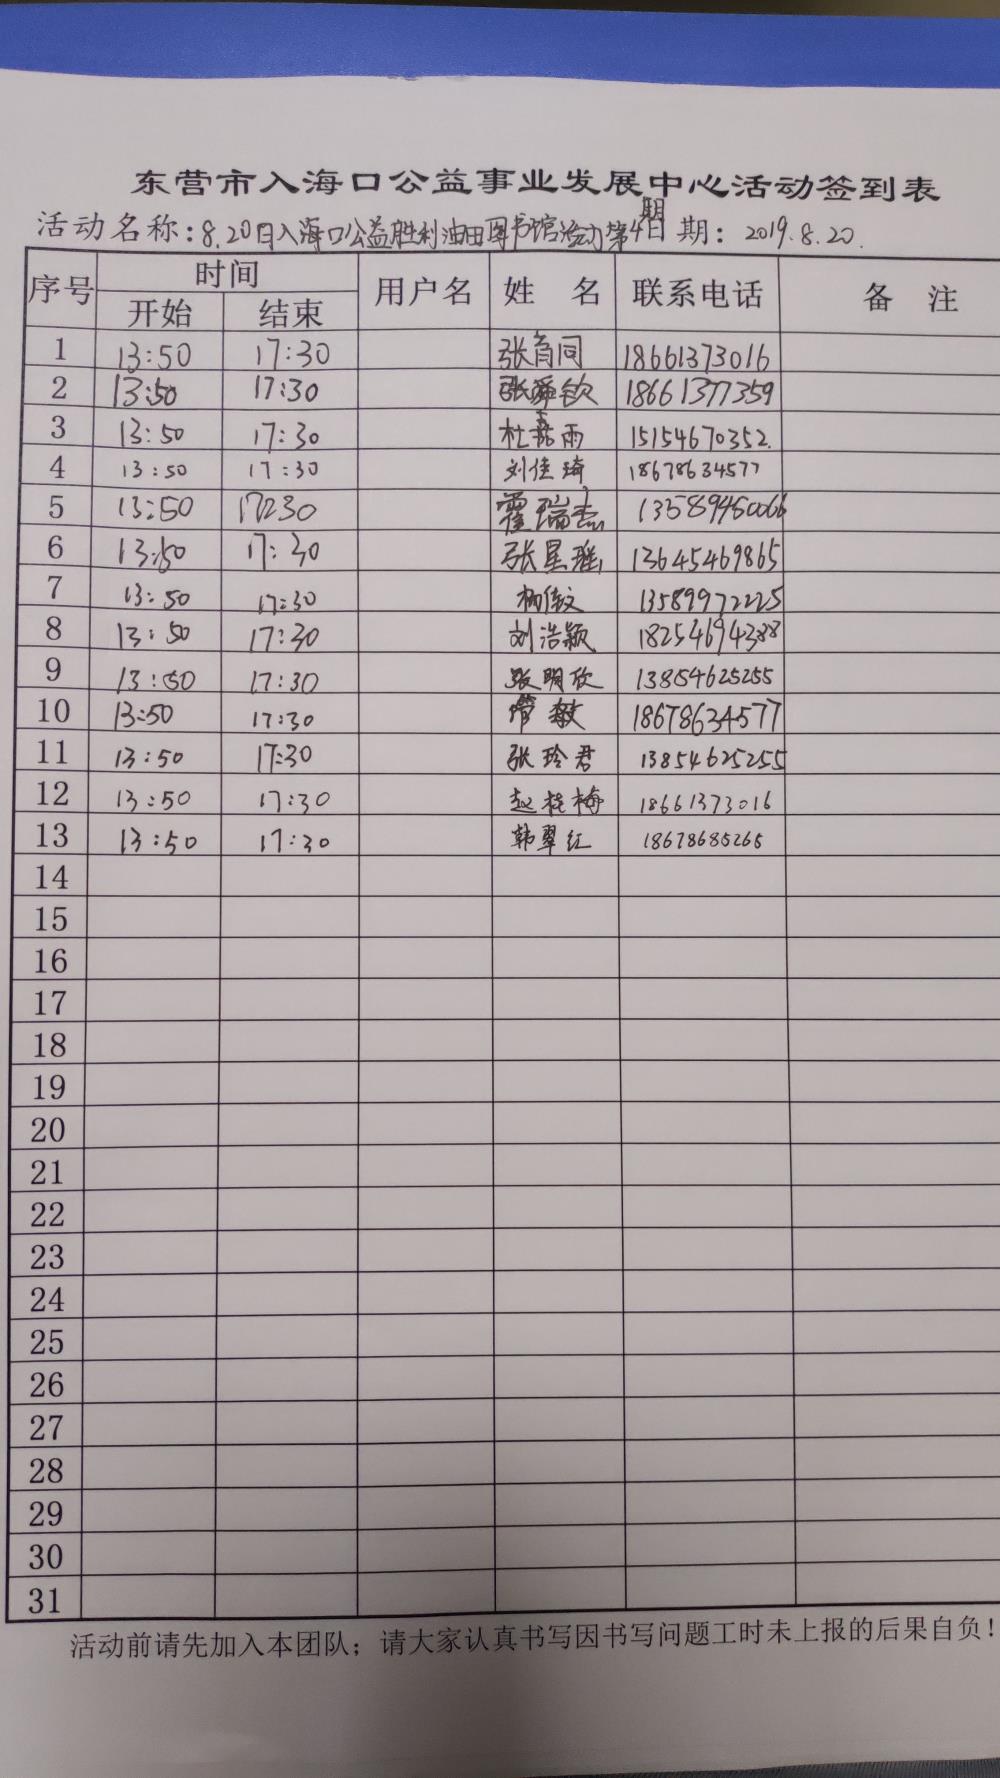 东营市入海口公益事业发展中心活动签到表
活动名称：8.20日入海口公益胜利油田图书馆活动第4期 日期：2019.8.20.
序号 时间 用户名 姓名 联系电话 备注
开始 结束
1 13:50 17:30 张育同 18661373016
2 13:50 17:30 张舜钦 18661377359
3 13:50 17:30 杜嘉雨 15154670352.
4 13:50 17:30 刘佳琦 18678634577
5 13:50 17:30 霍瑞杰 13589450066
6 13:50 17:30 张星雅 13645469865
7 13:50 17:30 13589972225
8 13:50 17:30 刘浩颖 18254694388
9 13:50 17:30 张明欣 13854625255
10 13:50 17:30 18678634577
11 13:50 17:30 张玲君 13854625255
12 13:50 17:30 赵桂梅 18661373016
13 13:50 17:30 韩翠红 18678685265
14
15
16
17
18
19
20
21
22
23
24
25
26
27
28
29
30
31
活动前请先加入本团队；请大家认真书写因书写问题工时未上报的后果自负！